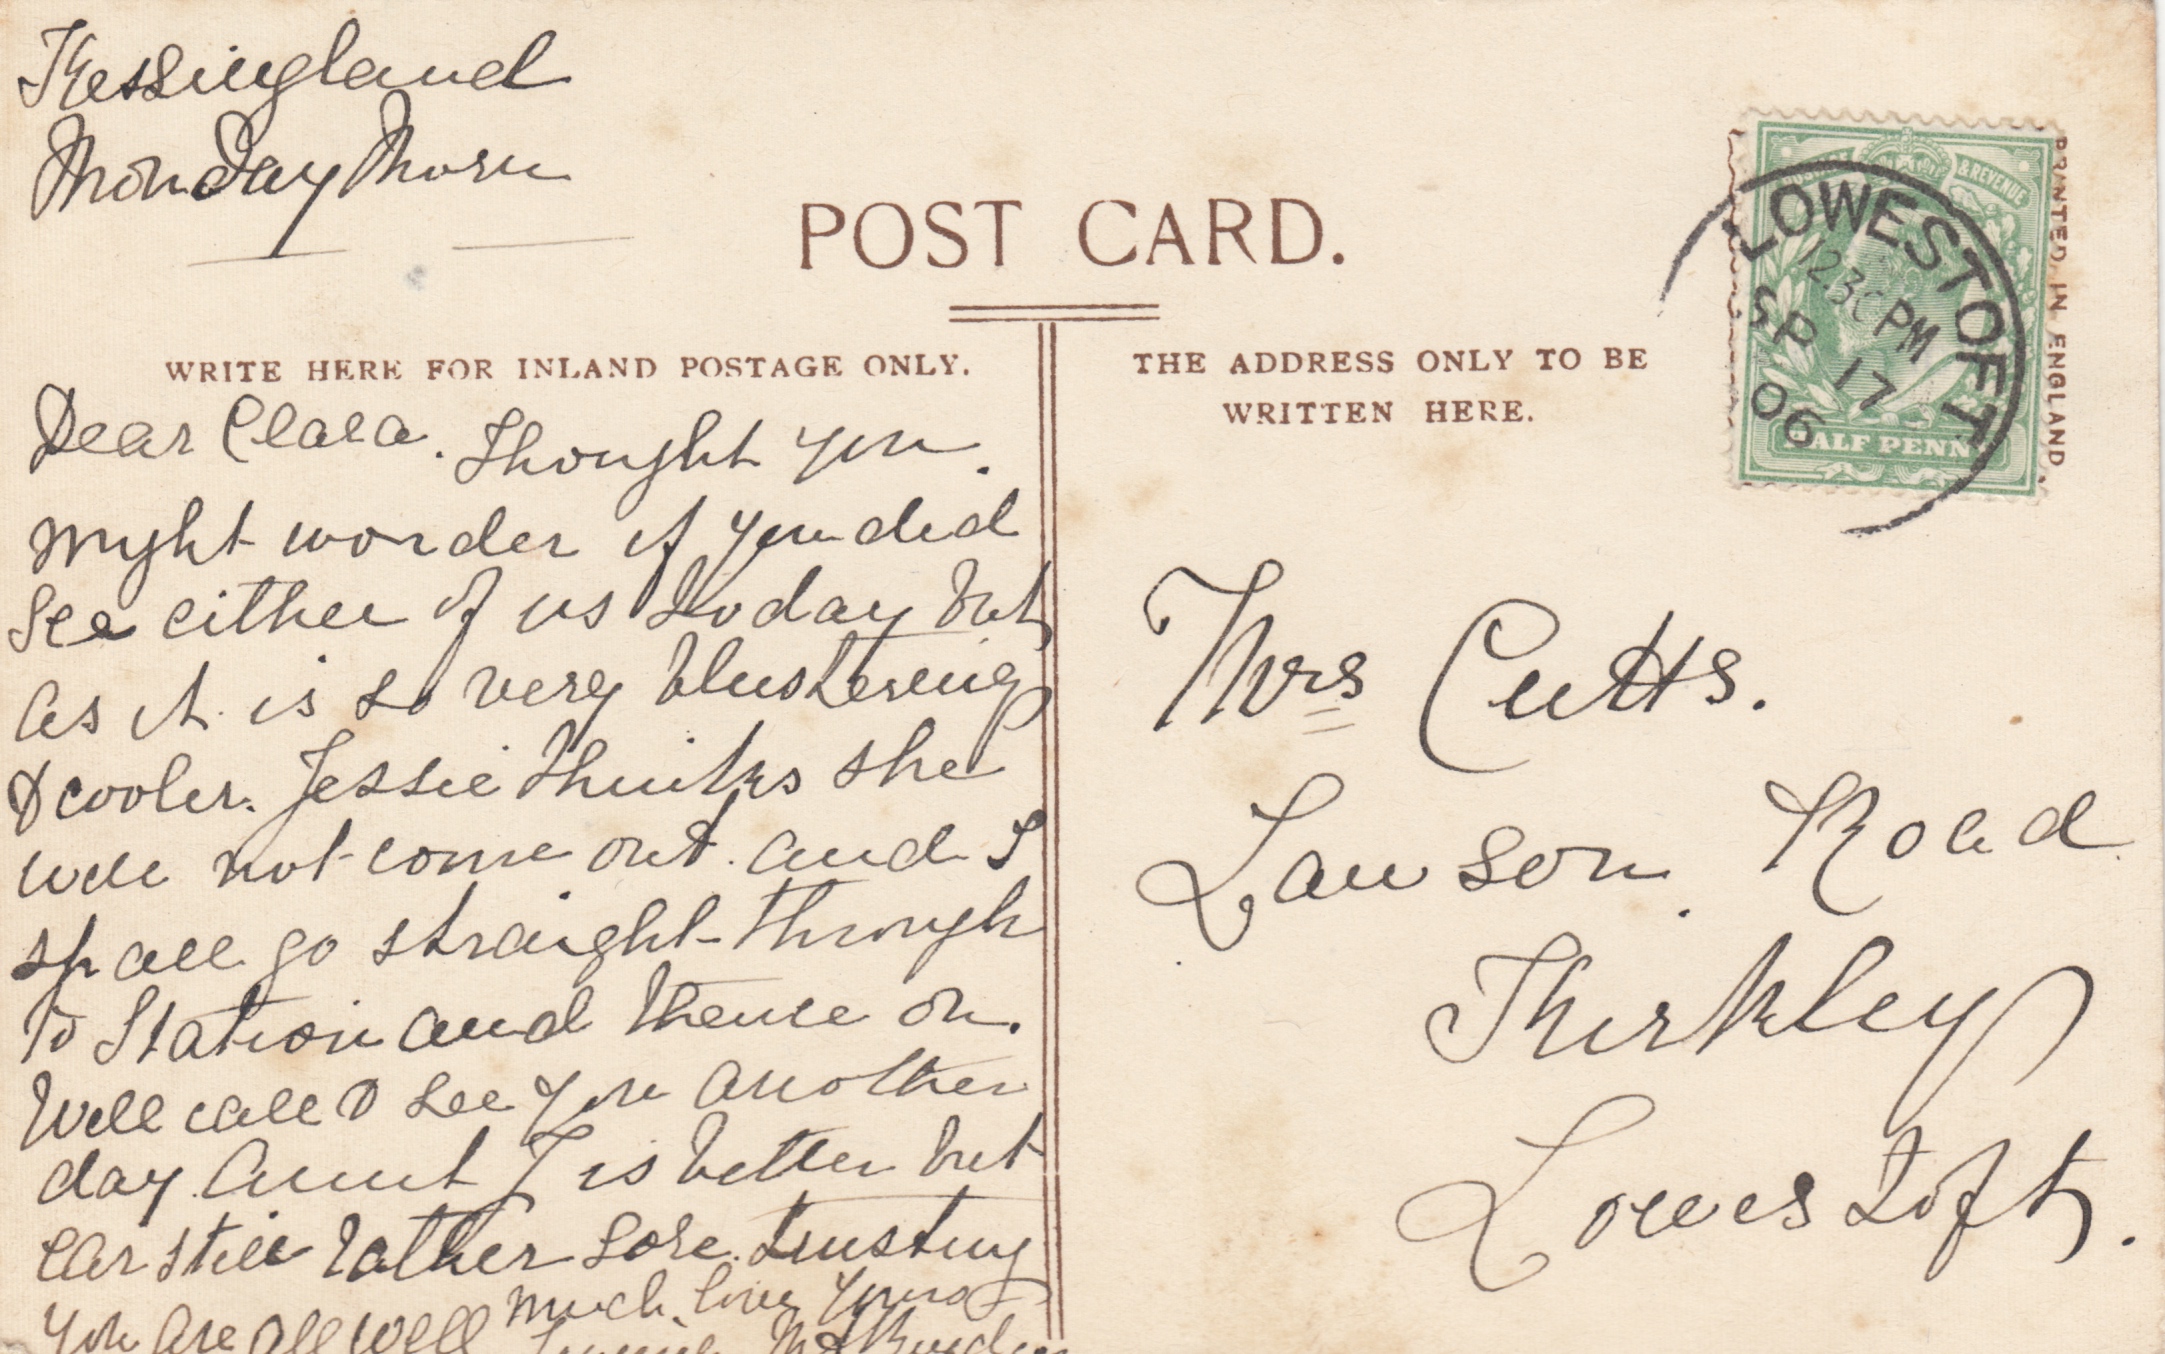 Kessingland
Monday Morn
POST CARD.
WRITE HERE FOR INLAND POSTAGE ONLY.
THE ADDRESS ONLY TO BE
WRITTEN HERE.
PRINTED IN ENGLAND
POSTAGE & REVENUE
HALF PENNY
LOWESTOFT
12.30 PM
SP 17
06
Dear Clara. Thought you
might wonder if you did
see either of us today but
as it is so very blustering
& cooler. Jessie thinks she
will not come out and I
shall go straight through
to Station and thence on.
Will call & see you another
day. Aunt J is better but
ear still rather sore. trusting
you are all well much love yours
Mrs Cutts.
Lawson Road
Kirkley
Lowestoft.